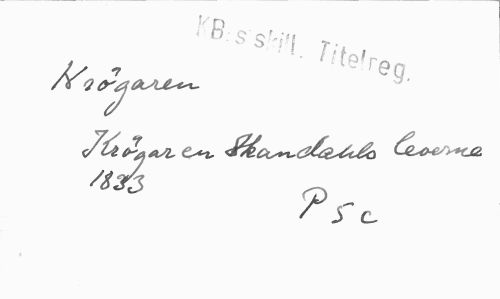 KB:s skill. Titelreg.
Krögaren
Krögaren Skandahls leverne
1833
P 5 c